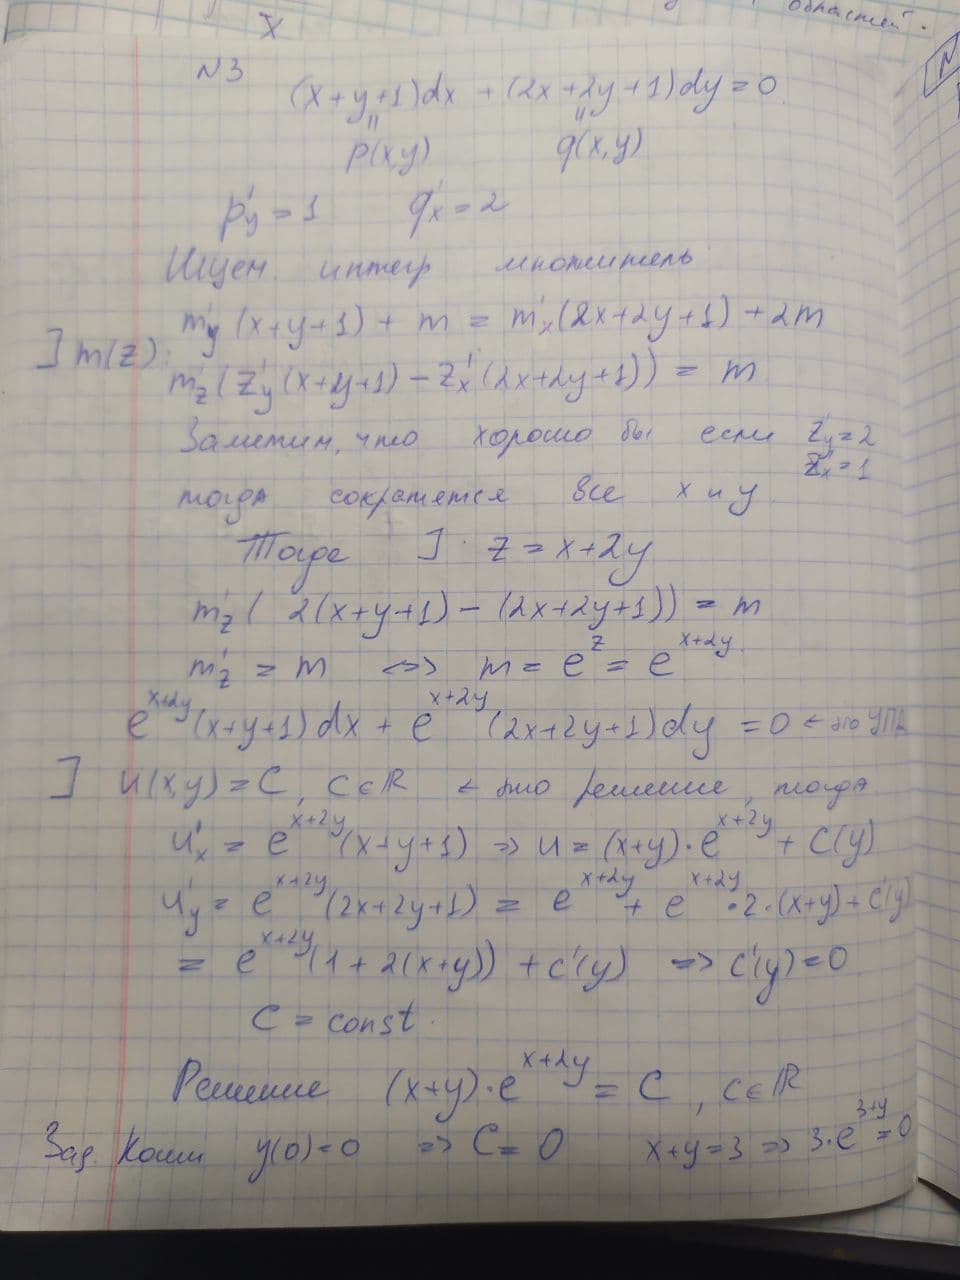 X
областей.
N
N3
(x+y+1)dx + (2x+2y+1)dy = 0
" "
p(x,y) q(x,y)
p'y = 1 q'x = 2
Ищем интегр множитель
m'y (x+y+1) + m = m'x (2x+2y+1) + 2m
] m(z):
m'z (z'y (x+y+1) − z'x (2x+2y+1)) = m
Заметим, что хорошо бы если z'y = 2
z'x = 1
тогда сократятся все x и y
Тогда ] z = x+2y
m'z ( 2(x+y+1) − (2x+2y+1)) = m
m'z = m <=> m = e^z = e^{x+2y}
e^{x+2y} (x+y+1)dx + e^{x+2y} (2x+2y+1)dy = 0 ← это УПД
] u(x,y) = C, C∈ℝ ← это решение, тогда
u'x = e^{x+2y} (x+y+1) => u = (x+y)·e^{x+2y} + C(y)
u'y = e^{x+2y} (2x+2y+1) = e^{x+2y} + e^{x+2y} ·2·(x+y) + C'(y)
= e^{x+2y} (1 + 2(x+y)) + C'(y) => C'(y) = 0
C = const.
Решение (x+y)·e^{x+2y} = C, C∈ℝ
Зад. Коши y(0) = 0 => C = 0 x+y=3 => 3·e^{3+y} = 0